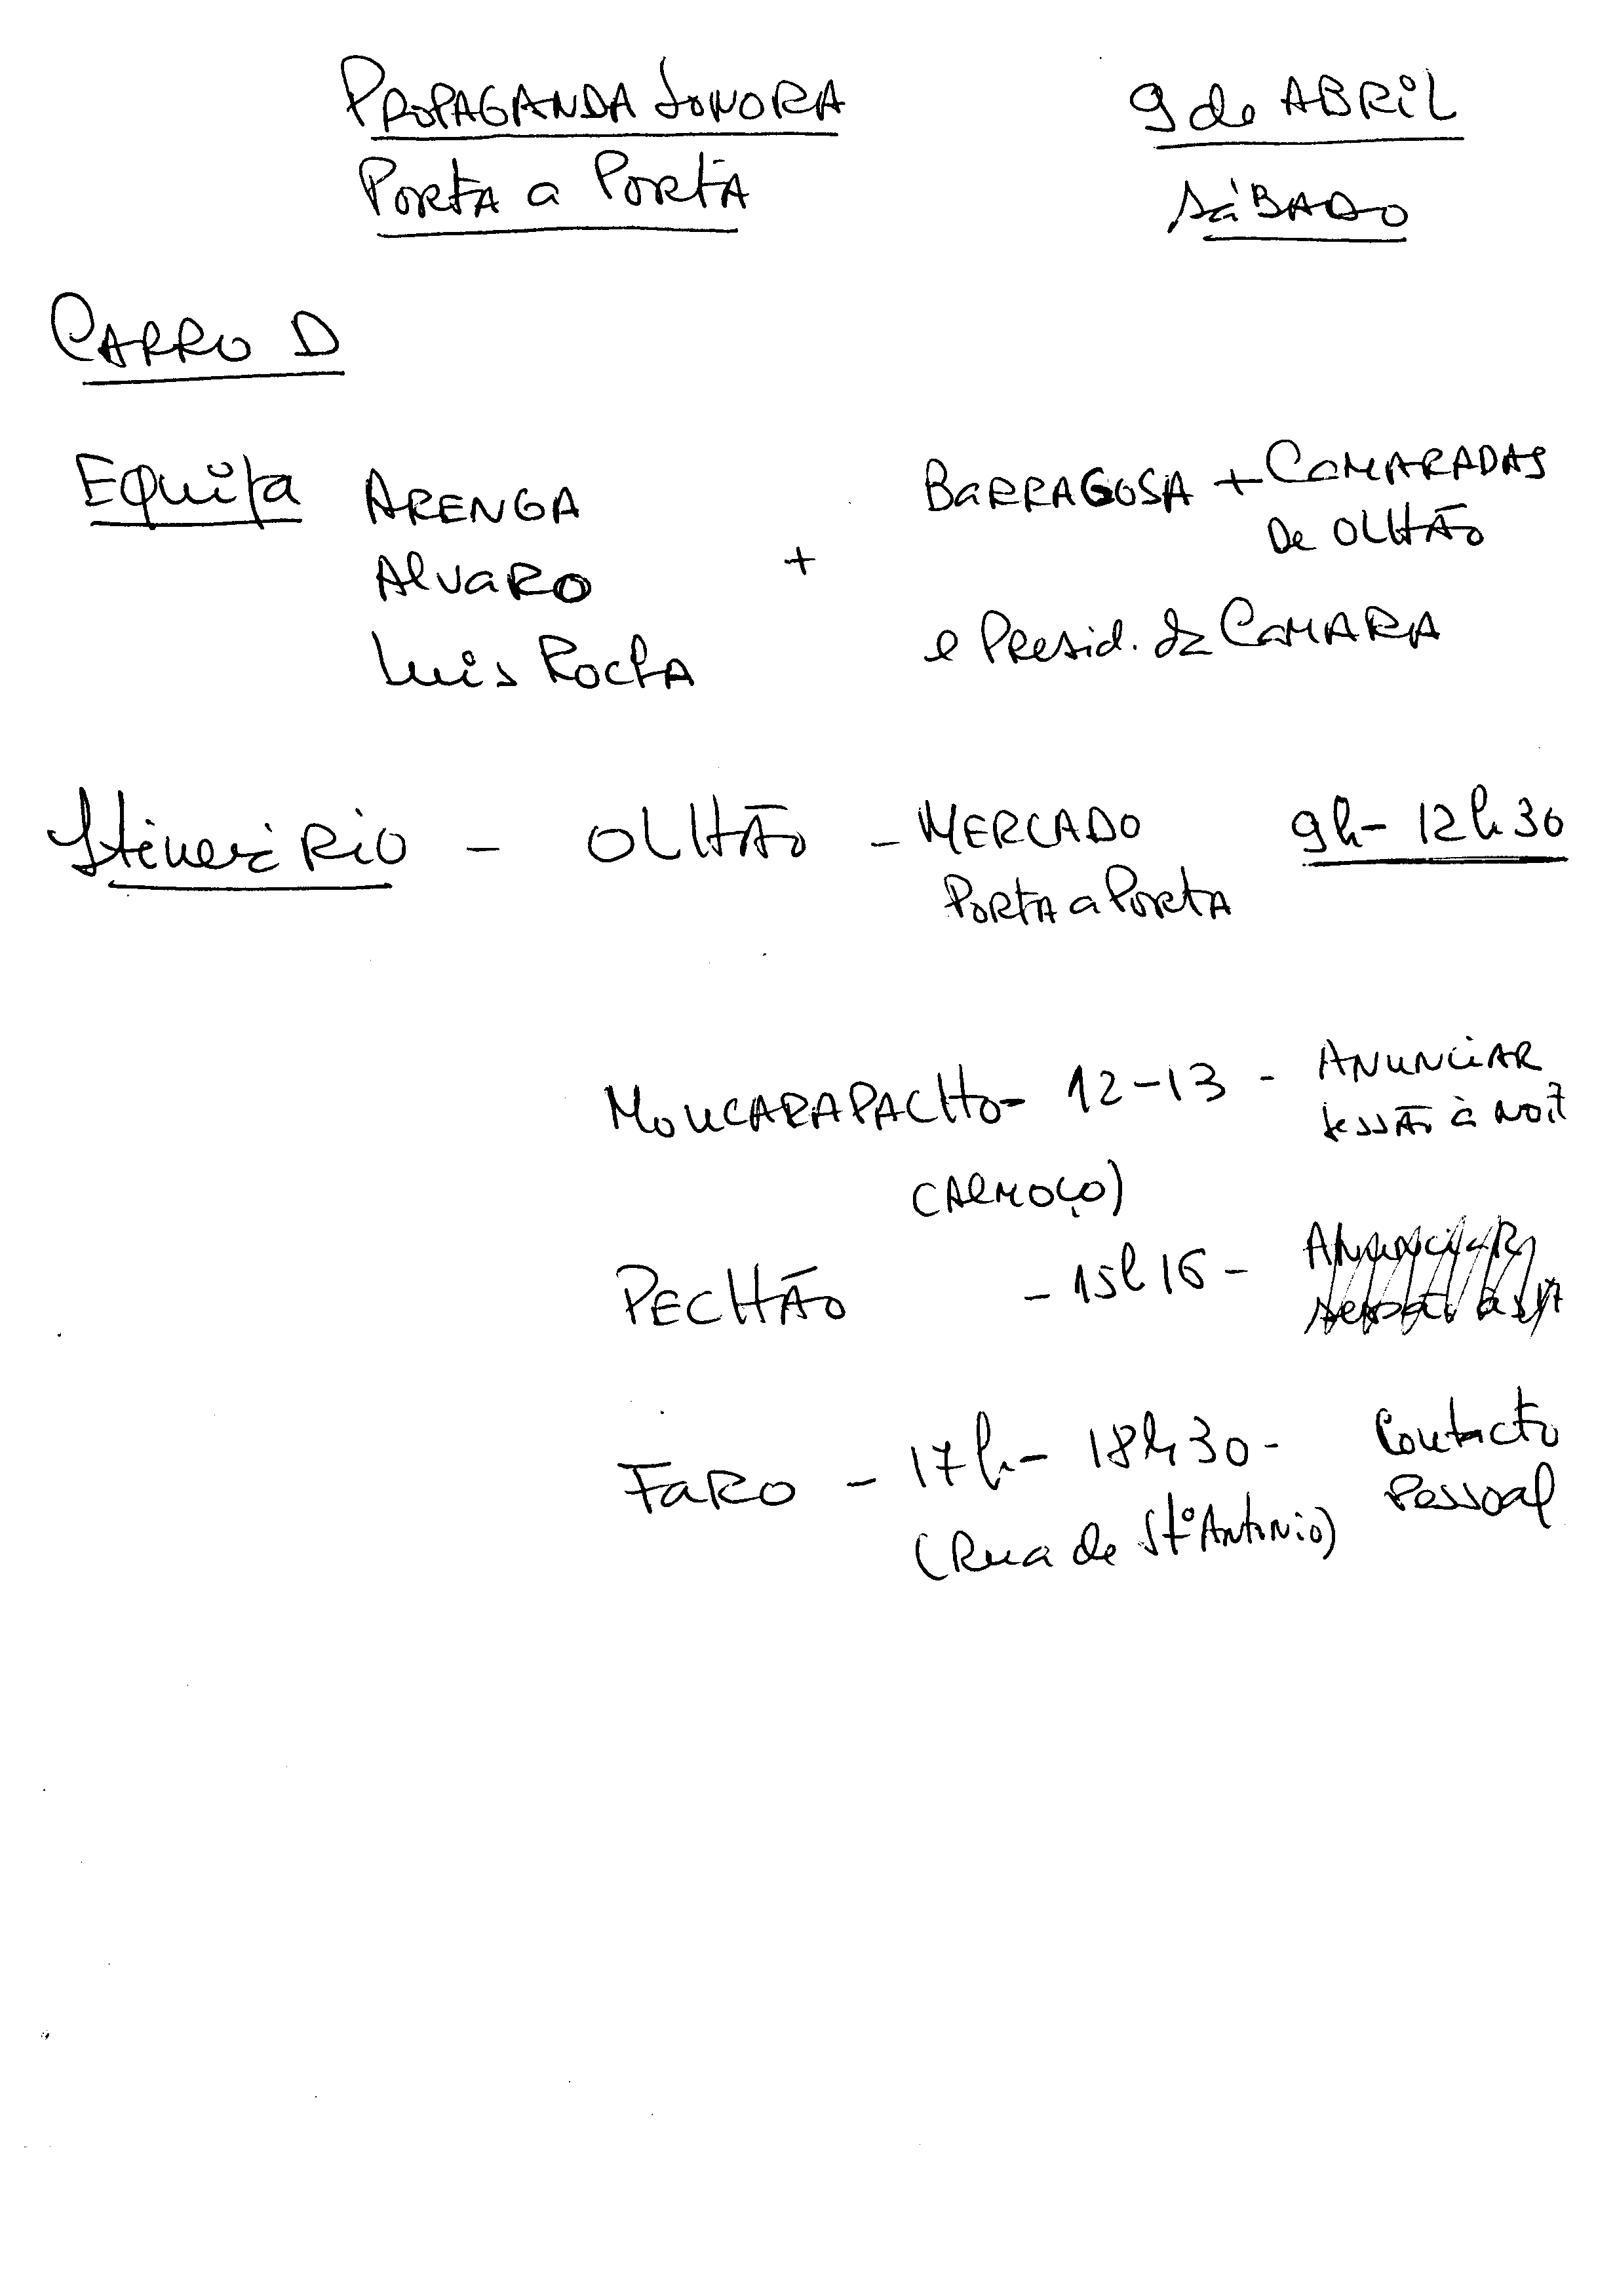 PROPAGANDA SONORA
PORTA a PORTA
9 de ABRIL
SÁBADO
CARRO D
EQUIPA ARENGA
ALVARO
LUIS ROCHA
+
BARRAGOSA + CAMARADAS
De OLHÃO
e PResid. da CAMARA
ItineráRIO - OLHÃO - MERCADO 9h - 12h30
PORTA a PORTA
MONCARAPACHO - 12-13 - ANUNCIAR
SESSÃO à NOIT
(ALMOÇO)
PECHÃO - 15h 16 - ANUNCIAR
FARO - 17h - 18h30 - Contacto
Pessoal
(Rua de Stº Antonio)